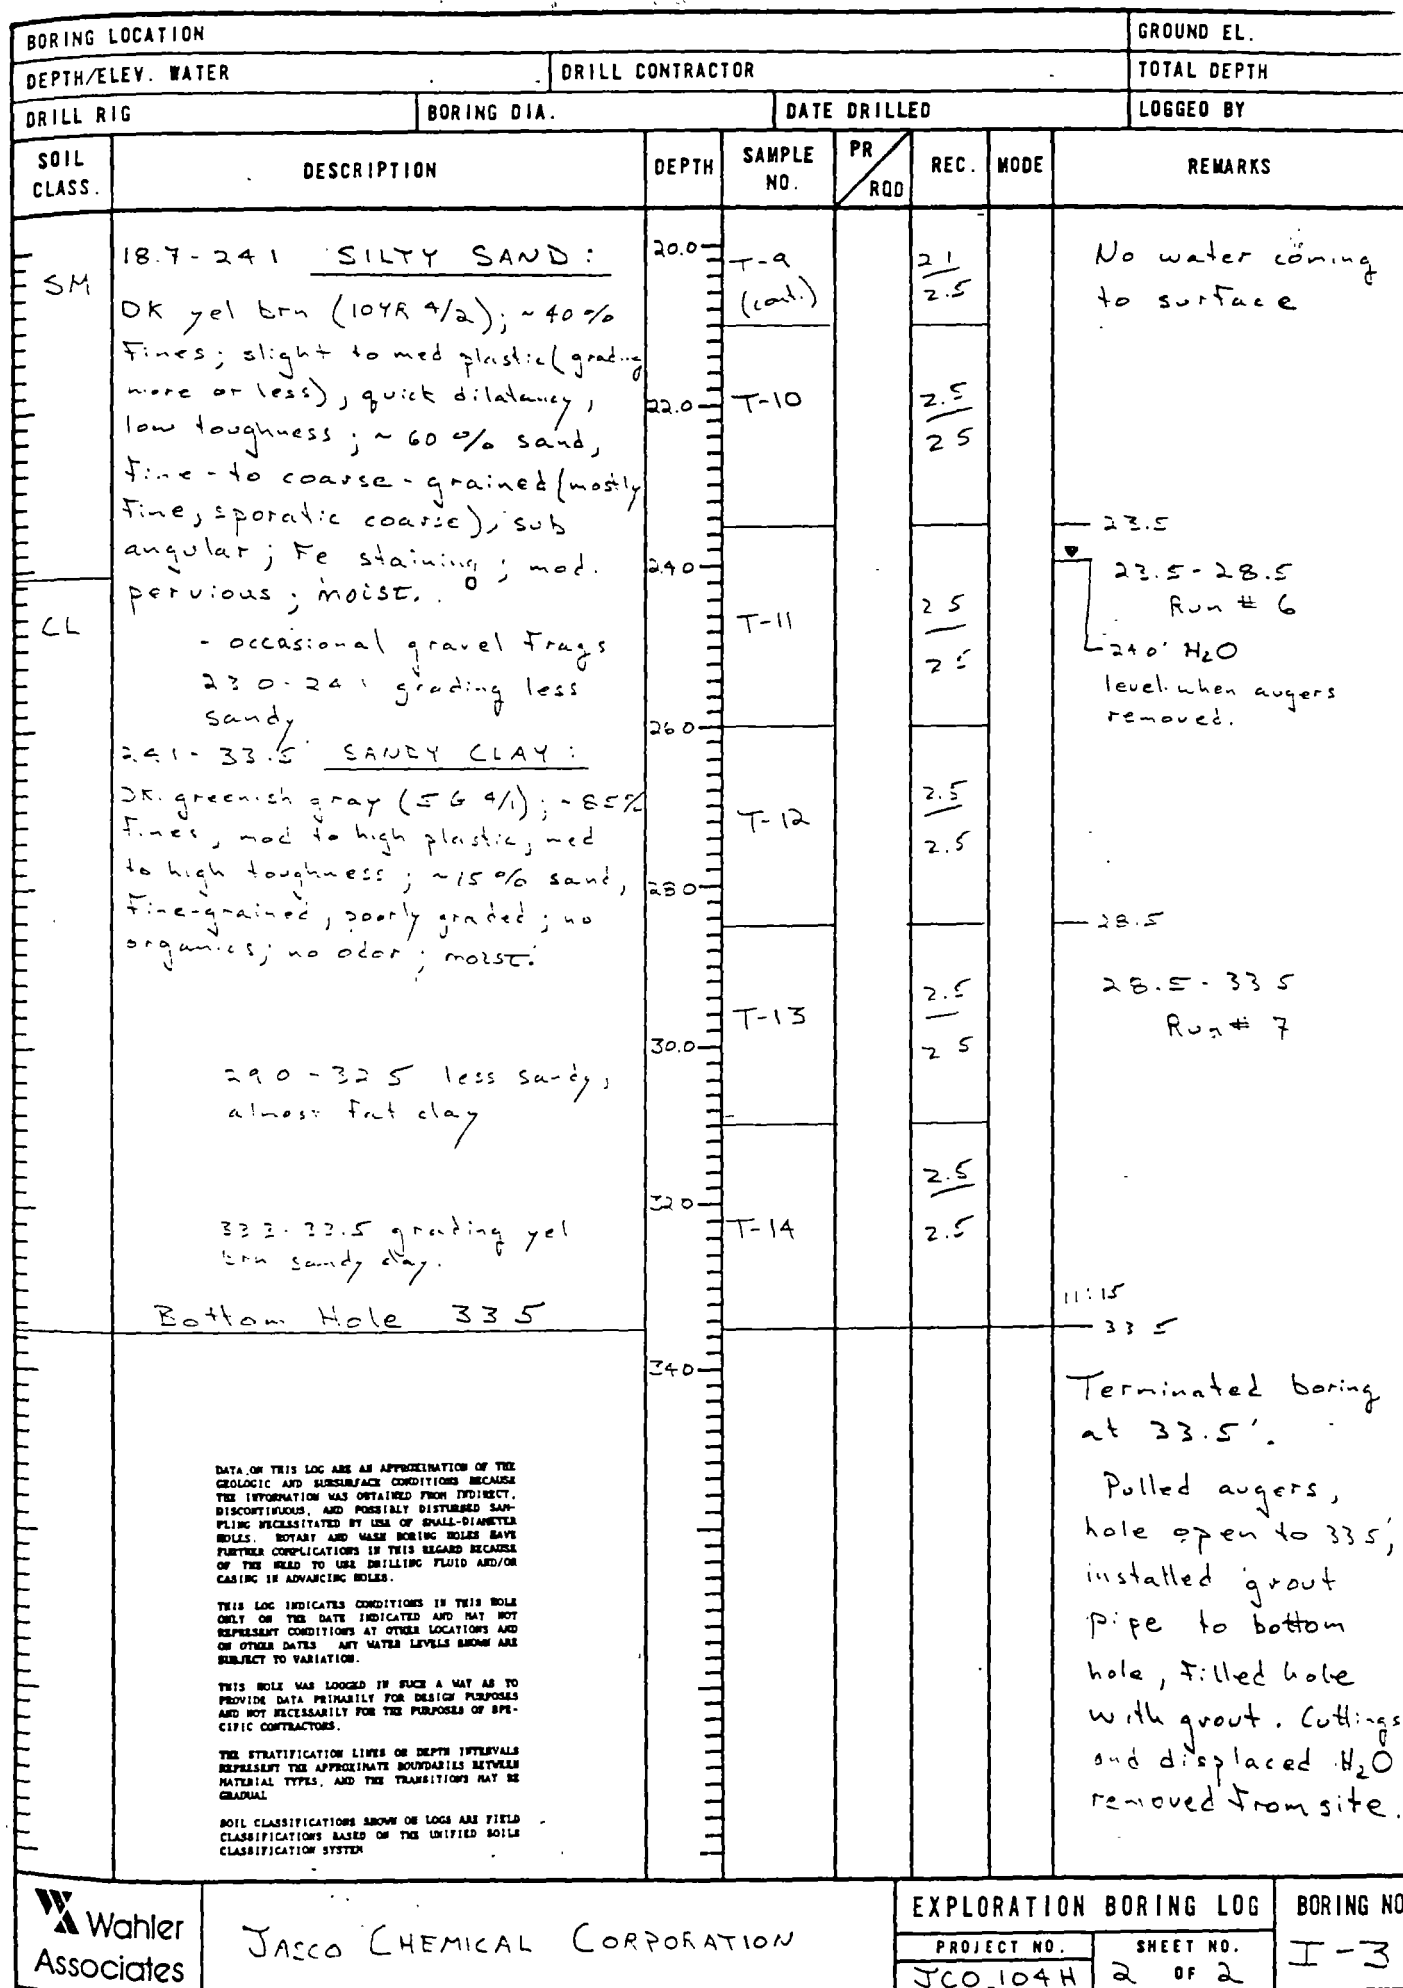 BORING LOCATION
GROUND EL.
DEPTH/ELEV. WATER
DRILL CONTRACTOR
TOTAL DEPTH
DRILL RIG
BORING DIA.
DATE DRILLED
LOGGED BY
SOIL CLASS.
DESCRIPTION
DEPTH
SAMPLE NO.
PR / RQD
REC.
MODE
REMARKS
SM
CL
18.7-24 1 SILTY SAND:
DK yel brn (10YR 4/2); ~40%
Fines; slight to med plastic (grading
more or less), quick dilatancy,
low toughness; ~60% sand,
fine-to coarse-grained (mostly
fine, sporatic coarse), sub
angular; Fe staining; mod.
pervious; moist.
- occasional gravel frags
23 0-24 1 grading less
sandy
24 1-33.5 SANDY CLAY:
DK. greenish gray (5G 4/1); ~85%
fines, mod to high plastic, med
to high toughness; ~15% sand,
fine-grained, poorly graded; no
organics; no odor; moist.
29 0-32 5 less sandy,
almost fat clay
33.5 grading yel
brn sandy clay.
Bottom Hole 33 5
20.0
22.0
24 0
26 0
28 0
30.0
32 0
34 0
T-9
(cont.)
T-10
T-11
T-12
T-13
T-14
2 1
2.5
2.5
2 5
2 5
2 5
2.5
2.5
2.5
2 5
2.5
2.5
No water coming
to surface
23.5
23.5-28.5
Run # 6
24 0' H2O
level when augers
removed.
28.5
28.5-33 5
Run # 7
11:15
33 5
Terminated boring
at 33.5'.
Pulled augers,
hole open to 33 5',
installed grout
pipe to bottom
hole, filled hole
with grout. Cuttings
and displaced H2O
removed from site.
DATA ON THIS LOG ARE AN APPROXIMATION OF THE
GEOLOGIC AND SUBSURFACE CONDITIONS BECAUSE
THE INFORMATION WAS OBTAINED FROM INDIRECT,
DISCONTINUOUS, AND POSSIBLY DISTURBED SAM-
PLING NECESSITATED BY USE OF SMALL-DIAMETER
HOLES. ROTARY AND WASH BORING HOLES HAVE
FURTHER COMPLICATIONS IN THIS REGARD BECAUSE
OF THE NEED TO USE DRILLING FLUID AND/OR
CASING IN ADVANCING HOLES.
THIS LOG INDICATES CONDITIONS IN THIS HOLE
ONLY ON THE DATE INDICATED AND MAY NOT
REPRESENT CONDITIONS AT OTHER LOCATIONS AND
ON OTHER DATES ANY WATER LEVELS SHOWN ARE
SUBJECT TO VARIATION.
THIS HOLE WAS LOGGED IN SUCH A WAY AS TO
PROVIDE DATA PRIMARILY FOR DESIGN PURPOSES
AND NOT NECESSARILY FOR THE PURPOSES OF SPE-
CIFIC CONTRACTORS.
THE STRATIFICATION LINES OR DEPTH INTERVALS
REPRESENT THE APPROXIMATE BOUNDARIES BETWEEN
MATERIAL TYPES, AND THE TRANSITIONS MAY BE
GRADUAL
SOIL CLASSIFICATIONS SHOWN ON LOGS ARE FIELD
CLASSIFICATIONS BASED ON THE UNIFIED SOILS
CLASSIFICATION SYSTEM
Wahler
Associates
JASCO CHEMICAL CORPORATION
EXPLORATION BORING LOG
BORING NO
PROJECT NO.
SHEET NO.
JCO 104H
2 OF 2
I-3